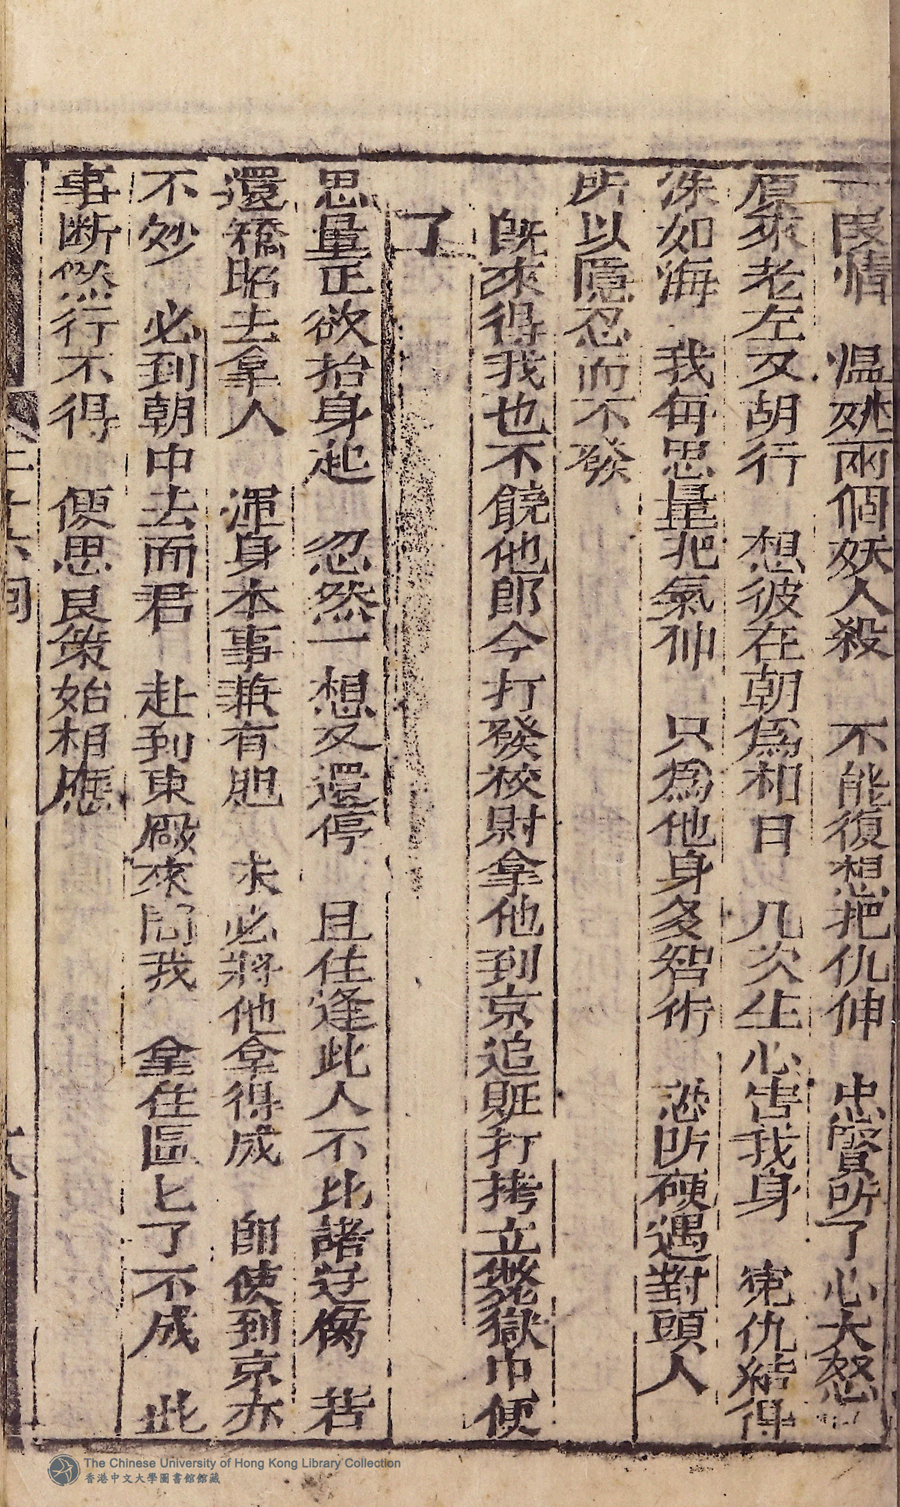 一叚情　温姚兩個妖人殺　不能復想把仇伸　忠賢所了心大怒
原來老左又胡行　想彼在朝爲相日　几次生心害我身　寃仇結得
洙如海　我每思量把氣伸　只爲他身多智術　恐防硬遇對頭人
所以隱忍而不發
既來得我也不饒他郎今打發校財拿他到京追賍打拷立斃獄巾便
了
思量正欲抬身起　忽然一想又還停　且住逢此人不比諸　若
還矯昭去拿人　渾身本事兼有胆　未必將他拿得成　即使到京亦
不妙　必到朝中去而君　赴到東厰來問我　拿住區匕了不成　此
事断然行不得　便思良策始相應
The Chinese University of Hong Kong Library Collection
香港中文大學圖書館館藏